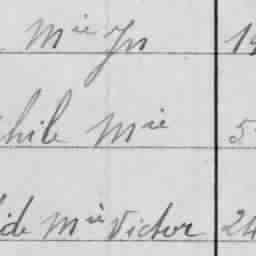 Mie
hile Mie 5
ide Mie Victor 24